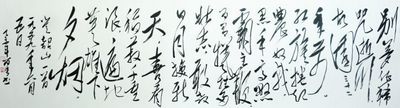 别梦依稀
咒逝川
故园三十二
年前
红旗卷起
农奴戟
黑手高悬
霸主鞭
为有牺牲多
壮志敢教
日月换新
天喜看
稻菽千重
浪遍地
英雄下
夕烟
一九五九年六月